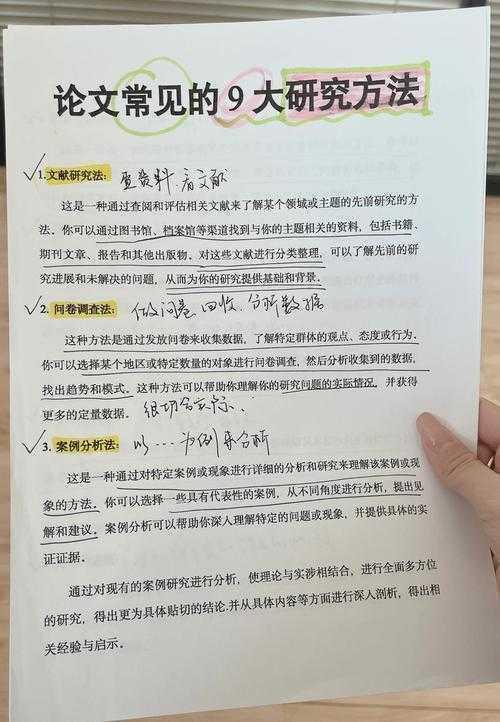 论文常见的9大研究方法
1.文献研究法: 查资料.看文献
这是一种通过查阅和评估相关文献来了解某个领域或主题的先前研究的方
法。你可以通过图书馆、档案馆等渠道找到与你的主题相关的资料,包括书籍、
期刊文章、报告和其他出版物。对这些文献进行分类整理,可以了解先前的研
究进展和未解决的问题,从而为你的研究提供基础和背景。
2. 问卷调查法: 做问卷 回收、分析数据
这种方法是通过发放问卷来收集数据,了解特定群体的观点、态度或行为。
你可以选择某个地区或特定数量的对象进行问卷调查,然后分析收集到的数据,
找出趋势和模式。这种方法可以帮助你理解你的研究问题的实际情况,并获得
更多的定量数据。 很切合实际.
3. 案例分析法: 以…为例来分析
这是一种通过对特定案例或现象进行详细的分析和研究来理解该案例或现
象的方法。你可以选择一些具有代表性的案例,从不同角度进行分析,提出见
解和建议。案例分析可以帮助你深入理解特定的问题或现象,并提供具体的实
证证据。
通过对现有的案例研究进行分析,使理论与实涉相结合,进行全面多方位
的研究,得出更为具体贴切的结论.并从具体内容等方面进行深入剖析,得出相
关经验与启示。